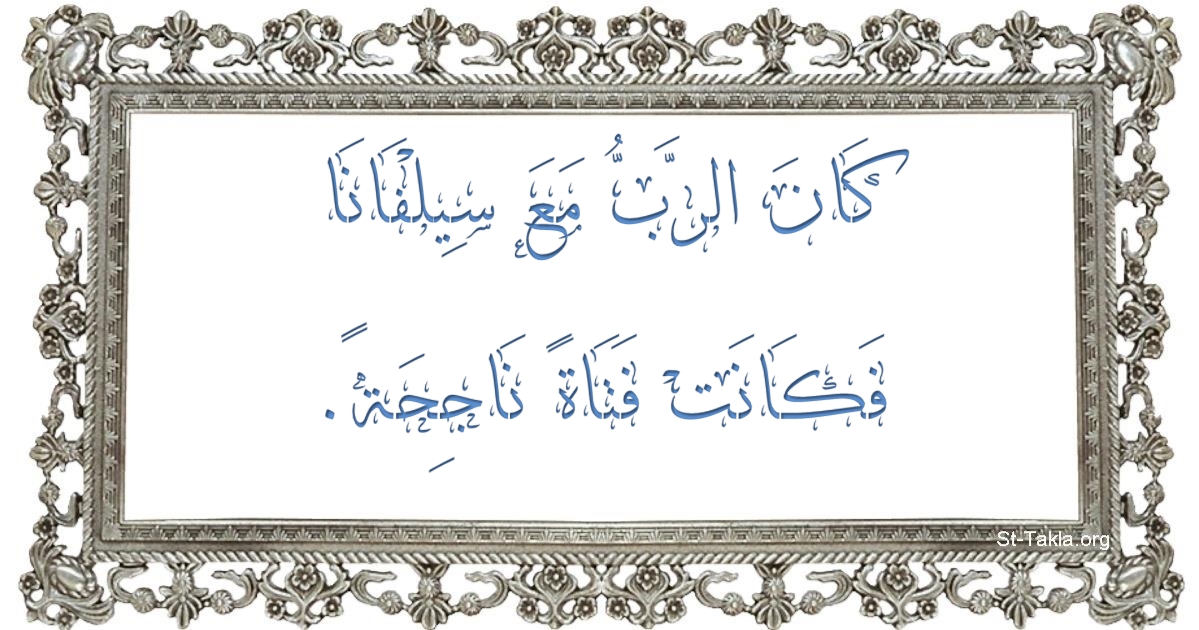 كَانَ الرَّبُّ مَعَ سِيلْفَانَا
فَكَانَتْ فَتَاةً نَاجِحَةً.
St-Takla.org